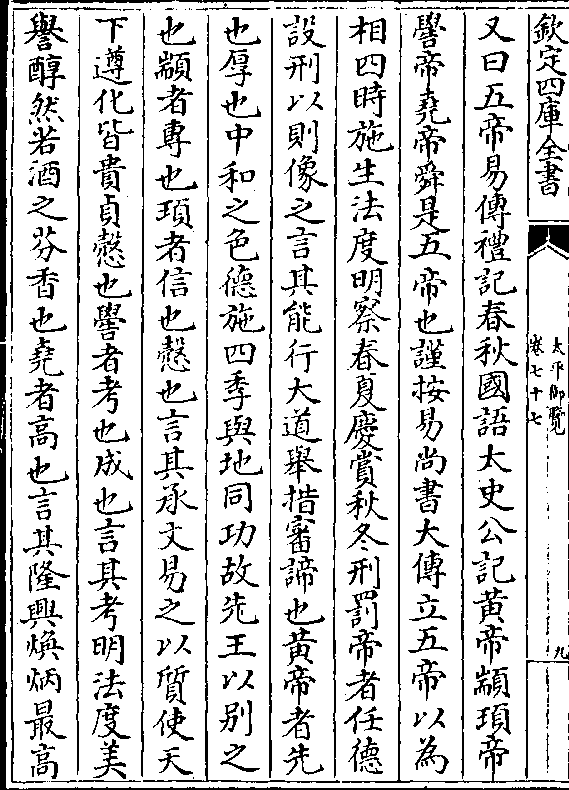 欽定四庫全書
太平御覽
卷七十七
九
又曰五帝易傳禮記春秋國語太史公記黃帝顓頊帝
嚳帝堯帝舜是五帝也謹按易尚書大傳立五帝以為
相四時施生法度明察春夏慶賞秋冬刑罰帝者任德
設刑以則像之言其能行大道舉措審諦也黃帝者先
也厚也中和之色德施四季與地同功故先王以别之
也顓者專也頊者信也慤也言其承文易之以質使天
下遵化皆貴貞慤也嚳者考也成也言其考明法度美
譽醇然若酒之芬香也堯者高也言其隆興煥炳最高